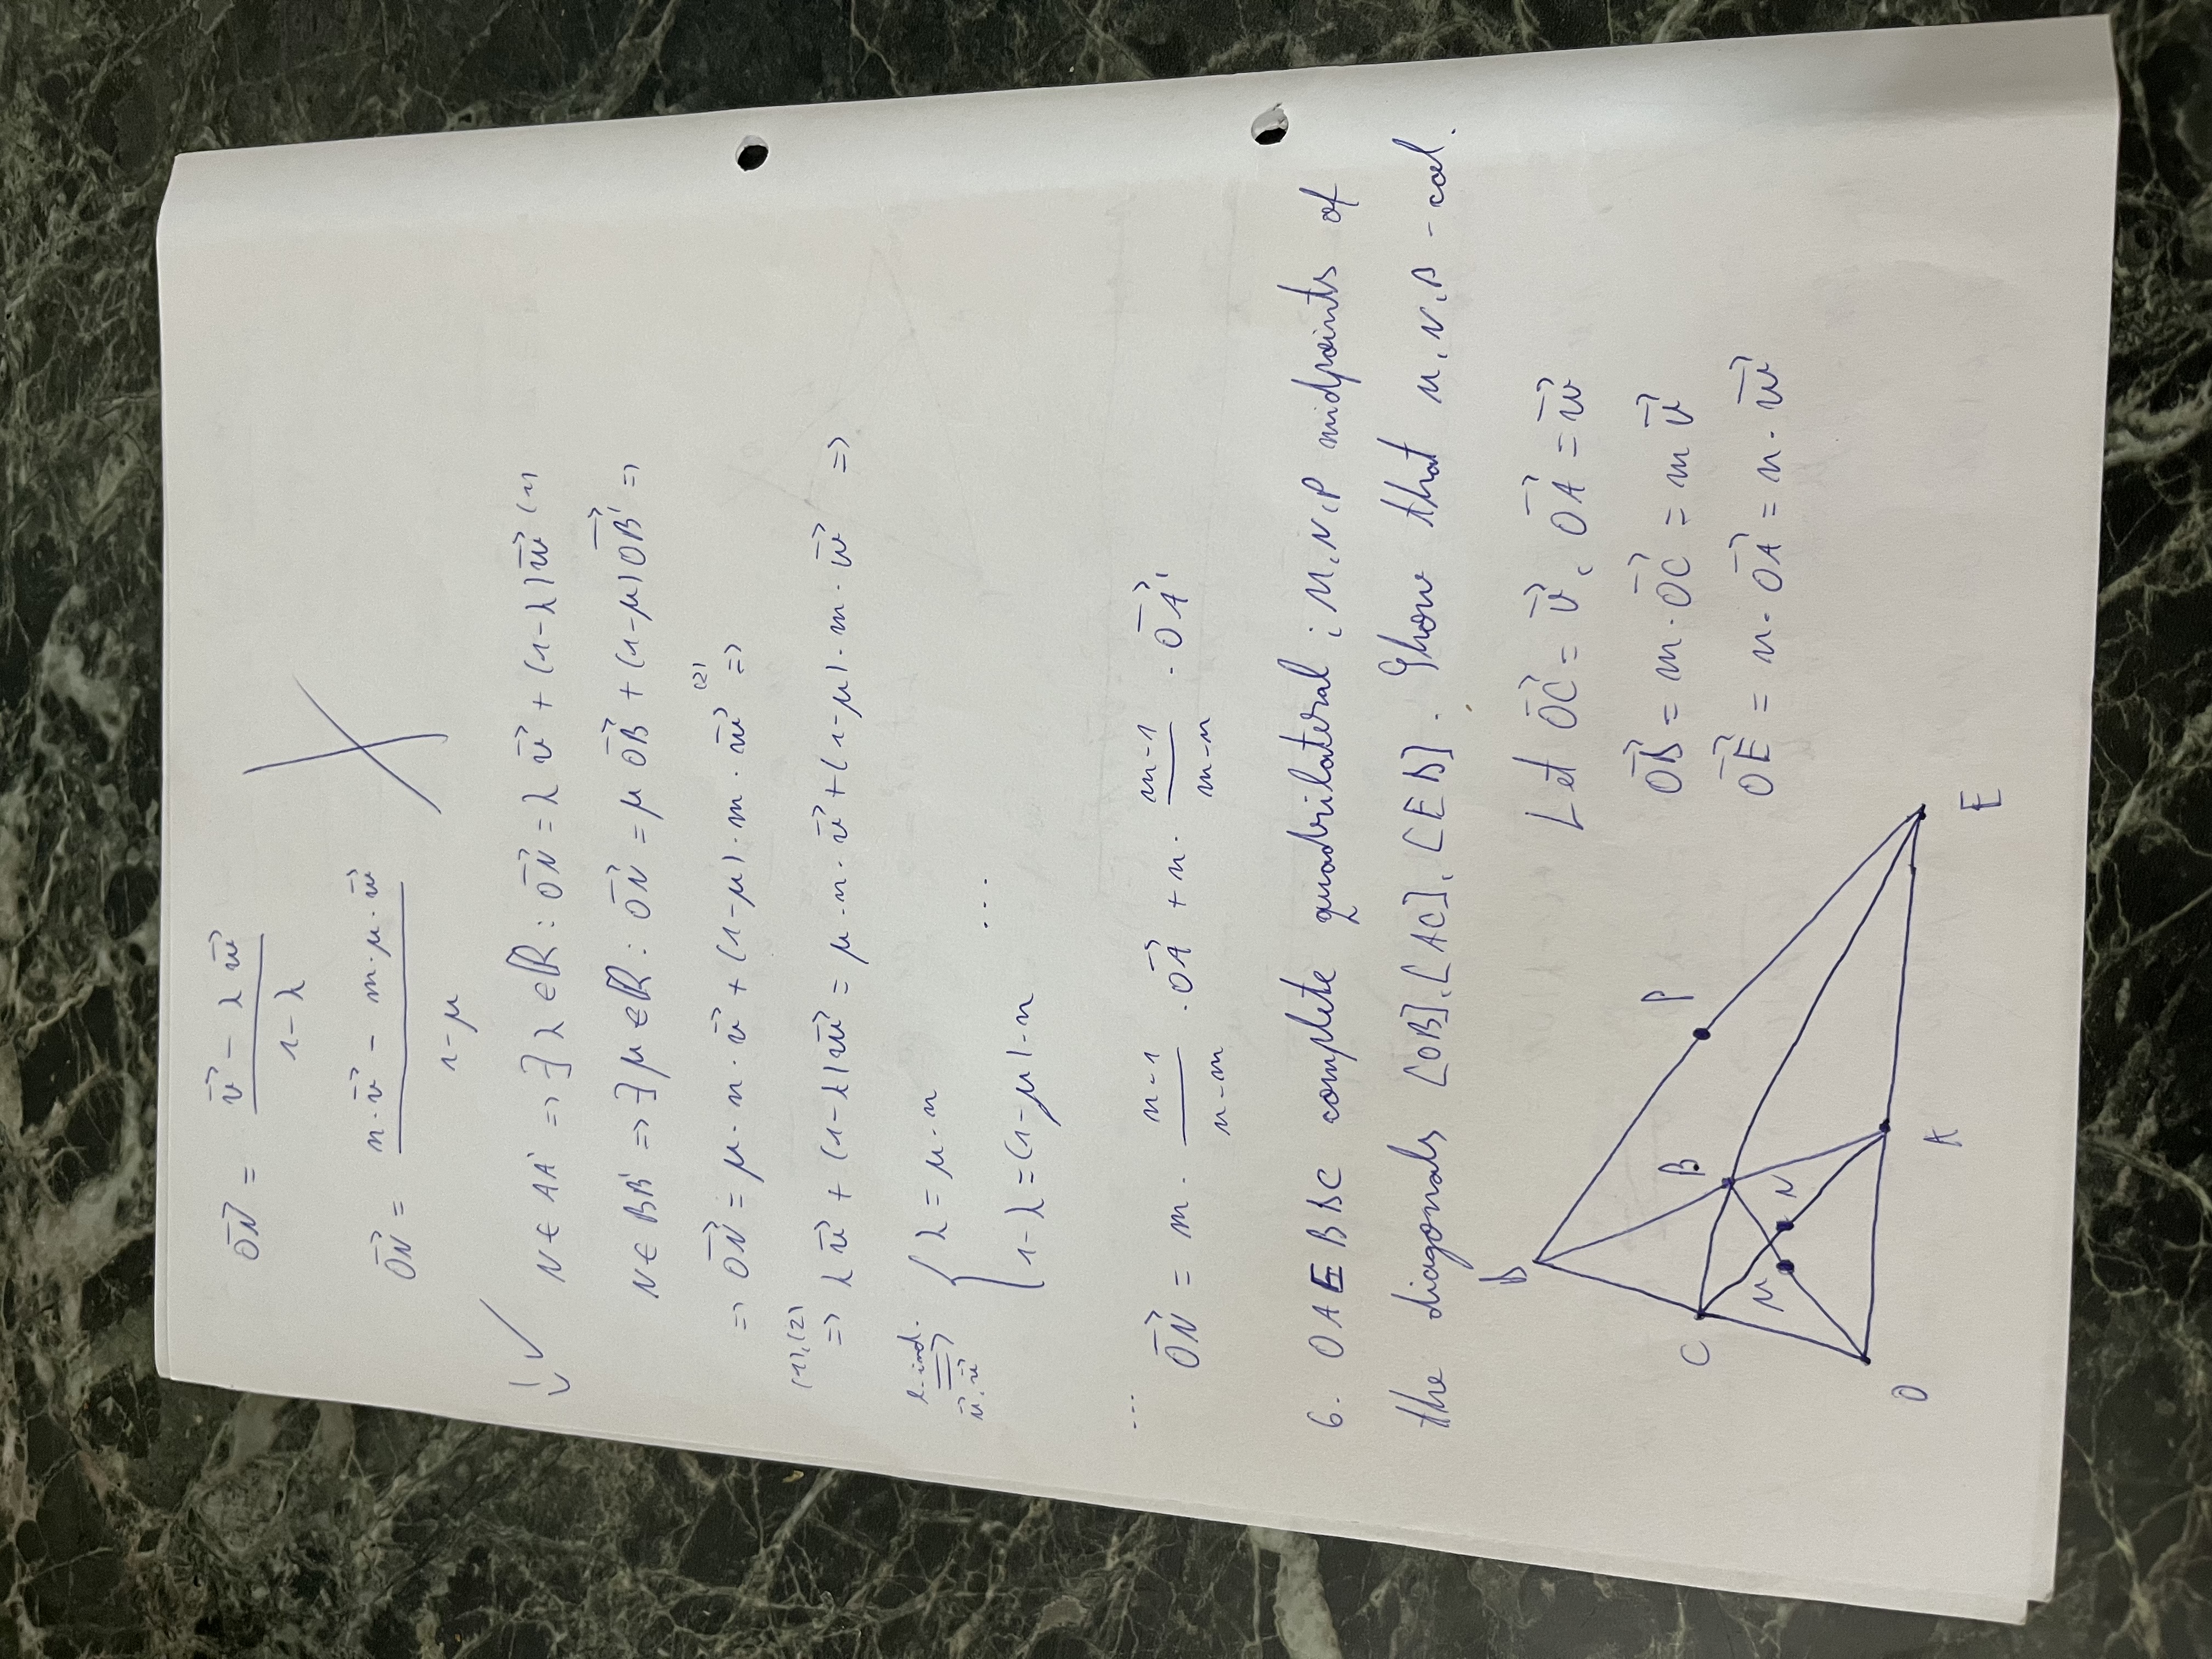 ON⃗ = (v⃗ - λ w⃗) / (1-λ)
ON⃗ = (n·v⃗ - m·μ·w⃗) / (1-μ)
N ∈ AA' => ∃ λ ∈ ℝ : ON⃗ = λ v⃗ + (1-λ) w⃗ (1)
N ∈ BB' => ∃ μ ∈ ℝ : ON⃗ = μ OB⃗ + (1-μ) OB'⃗ =>
=> ON⃗ = μ · n · v⃗ + (1-μ) · m · w⃗ (2) =>
(1),(2) => λ v⃗ + (1-λ) w⃗ = μ · n · v⃗ + (1-μ) · m · w⃗ =>
l. ind. => u⃗, v⃗ { λ = μ · n
1-λ = (1-μ) · n ...
... ON⃗ = m · (n-1)/(n-m) · OA⃗ + n · (m-1)/(m-n) · OA'⃗
6. OAEBDC complete quadrilateral ; M, N, P midpoints of
the diagonals [OB], [AC], [ED]. Show that M, N, P - col.
D
Let OC⃗ = v⃗, OA⃗ = w⃗
OD⃗ = m · OC⃗ = m v⃗
P
B
C
OE⃗ = n · OA⃗ = n · w⃗
M
N
O
A
E